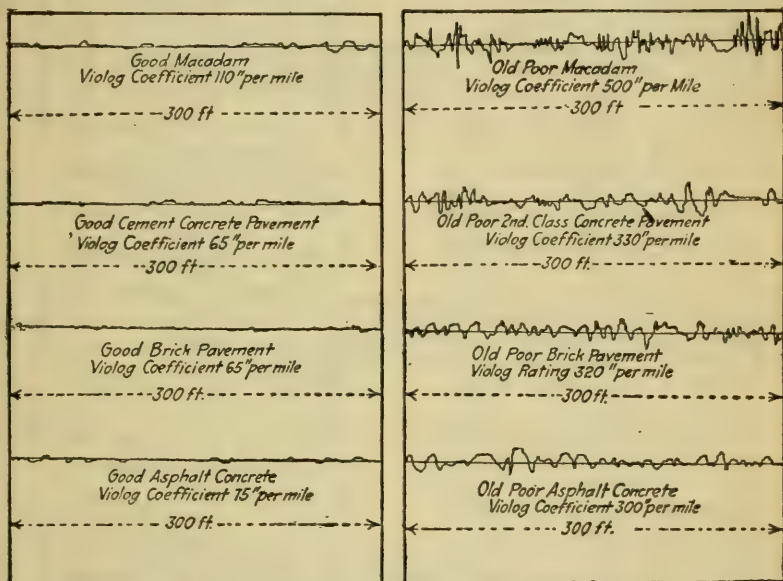 Good Macadam
Violog Coefficient 110" per mile
300 ft
Good Cement Concrete Pavement
Violog Coefficient 65" per mile
300 ft.
Good Brick Pavement
Violog Coefficient 65" per mile
300 ft.
Good Asphalt Concrete
Violog Coefficient 75" per mile
300 ft.
Old Poor Macadam
Violog Coefficient 500" per Mile
300 ft
Old Poor 2nd. Class Concrete Pavement
Violog Coefficient 330" per mile
300 ft.
Old Poor Brick Pavement
Violog Rating 320" per mile
300 ft.
Old Poor Asphalt Concrete
Violog Coefficient 300" per mile
300 ft.